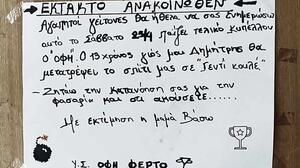 ΕΚΤΑΚΤΟ ΑΝΑΚΟΙΝΩΘΕΝ
Αγαπητοί γείτονες θα ήθελα να σας ενημερώσω
αυτό το ΣΑΒΒΑΤΟ 25/4 Παίζει τελικό κυπέλλου
ο "ΟΦΗ". Ο 13 χρονος γιός μου Δημήτρης θα
μετατρέψει το σπίτι μας σε "Γεντί κουλέ."
- Ζητάω την κατανόηση σας για την
φασαρία και ότι ακούσετε.....
Με εκτίμηση η μαμά Βάσω
Υ.Σ. ΟΦΗ ΦΕΡΤΟ